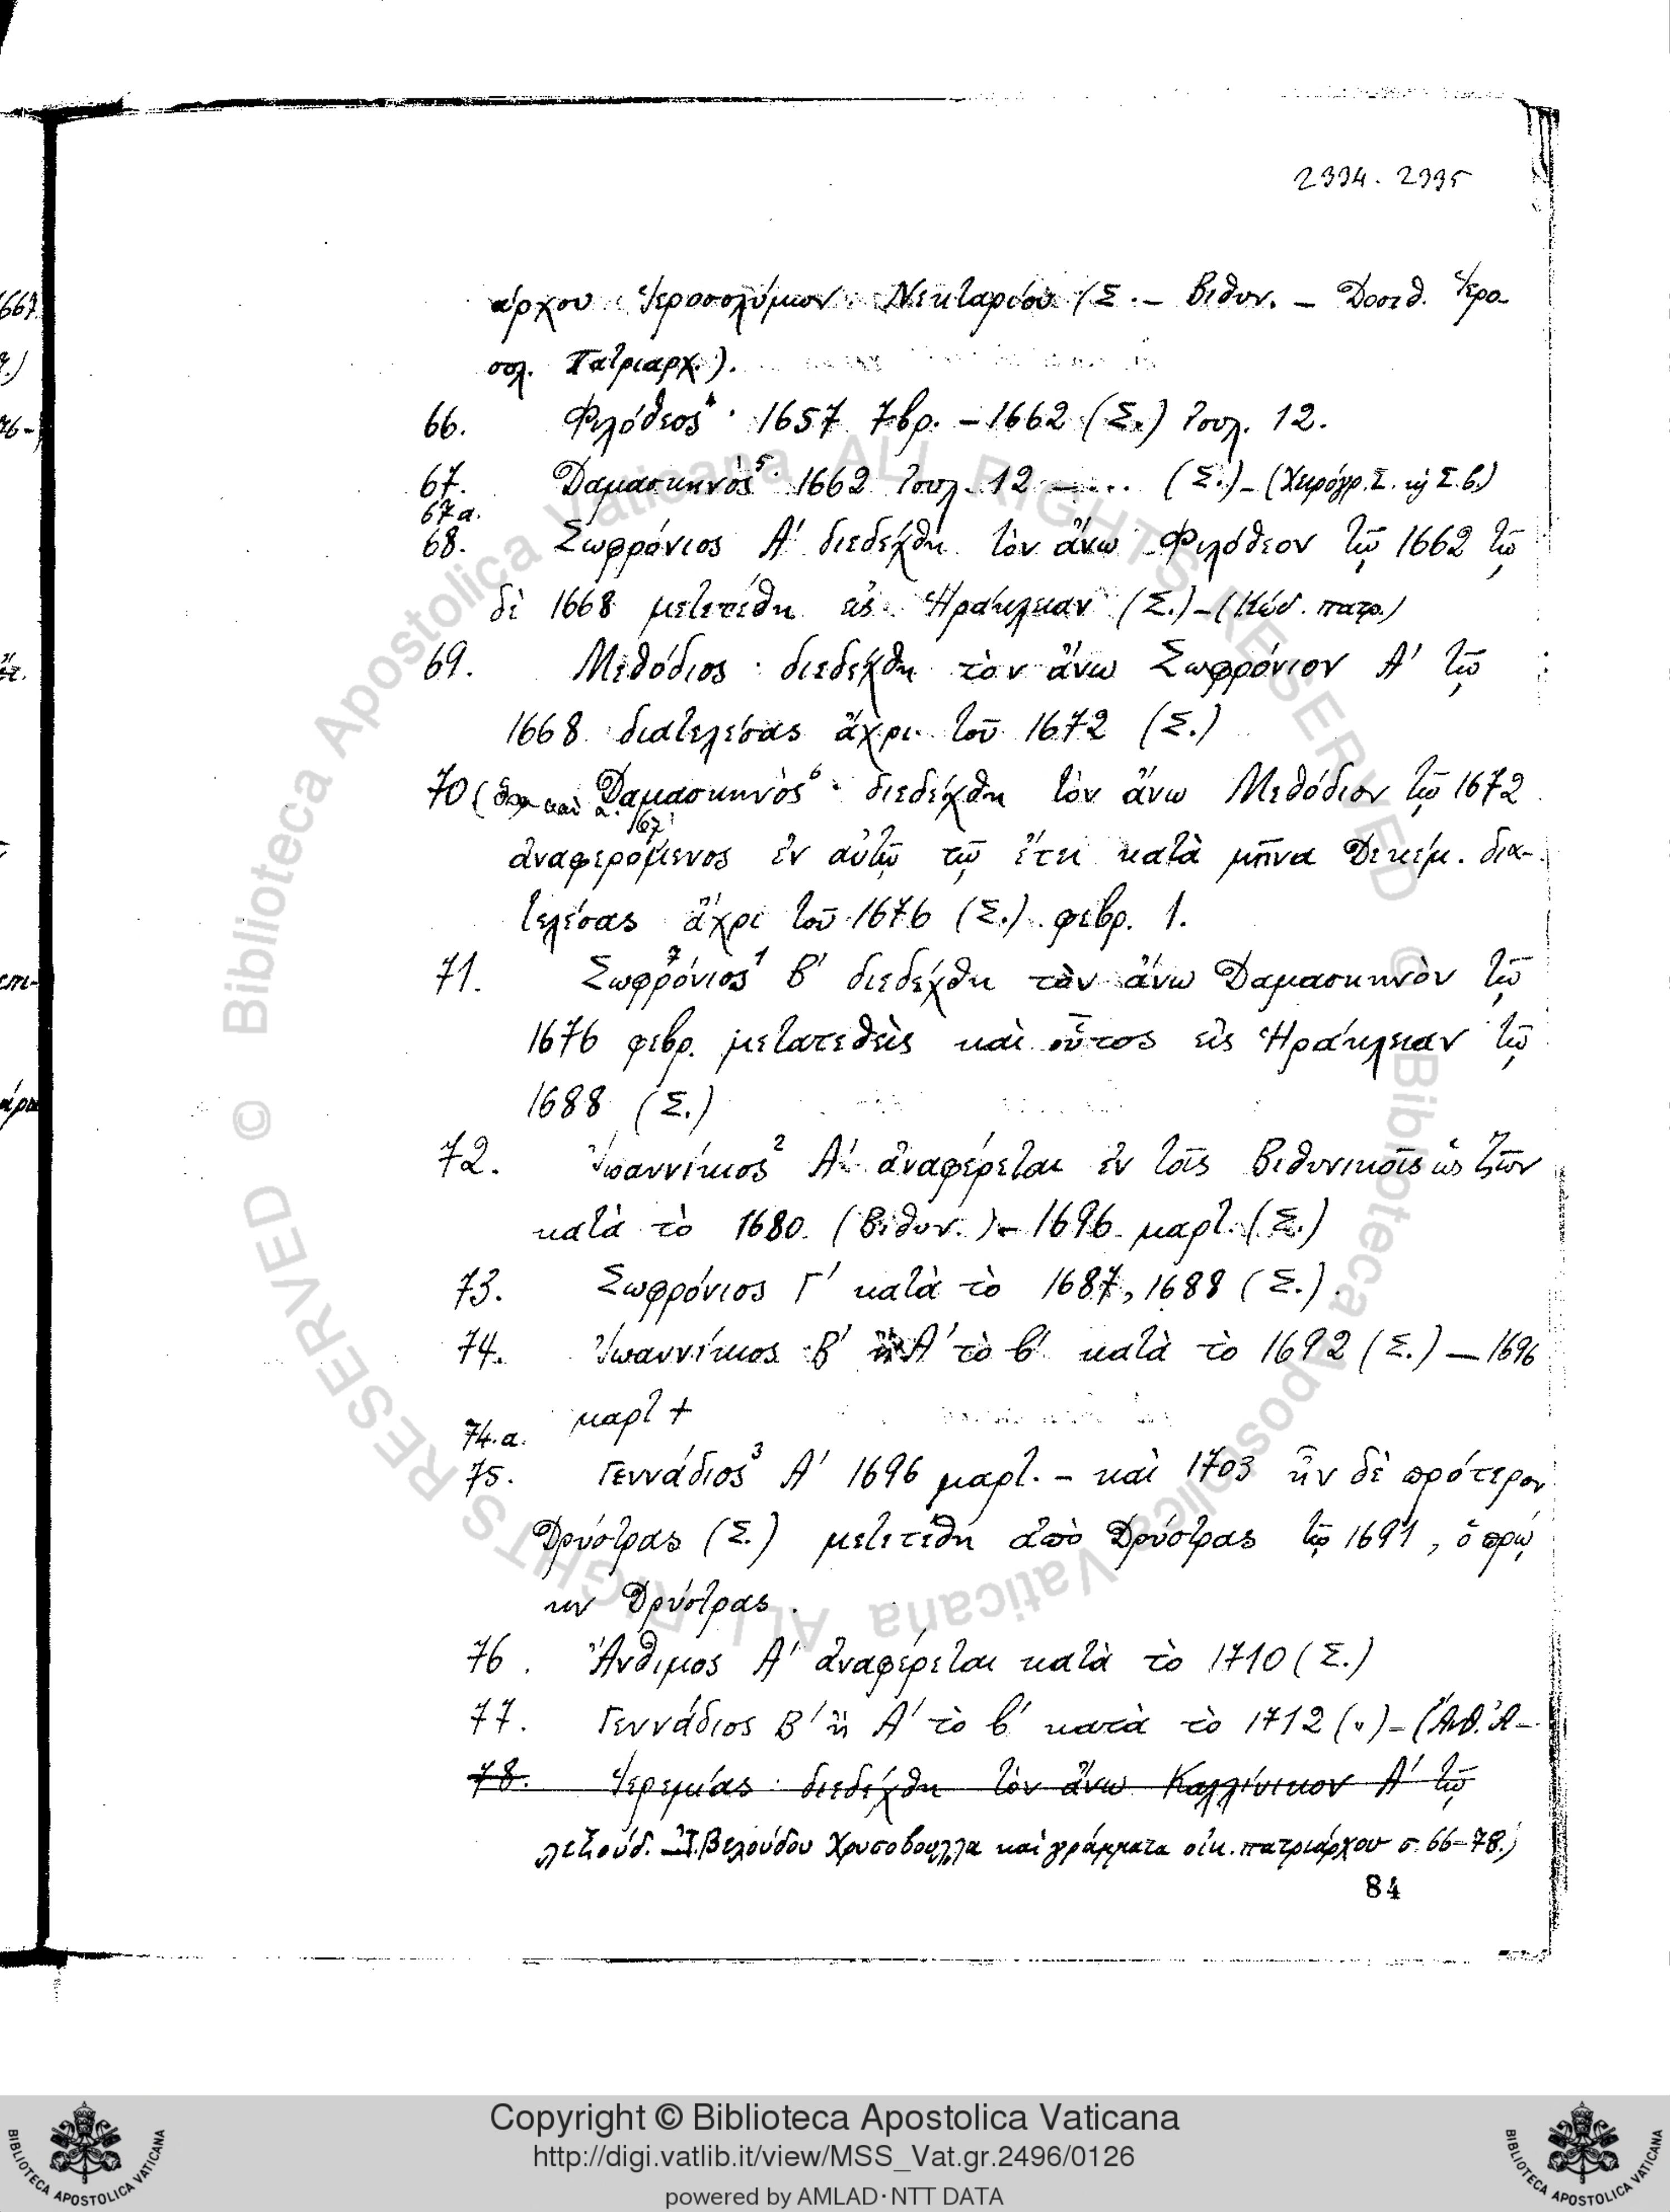 2334. 2335
άρχου Ἱεροσολύμων Νεκταρίου (Σ. – Βιθυν. – Δοσιθ. Ἱερο
σολ. Πατριαρχ.).
66. Φιλόθεος⁴· 1657 7βρ. – 1662 (Σ.) Ἰουλ. 12.
67. Δαμασκηνὸς⁵· 1662 Ἰουλ. 12 –... (Σ.) – (Χειρόγρ. Σ. κὴ Σ.β.)
67a.
68. Σωφρόνιος Α' διεδέχθη τὸν ἄνω Φιλόθεον τῷ 1662 τῷ
δὲ 1668 μετετέθη εἰς Ἡράκλειαν (Σ.) – (Κώδ. πατρ.)
69. Μεθόδιος· διεδέχθη τὸν ἄνω Σωφρόνιον Α' τῷ
1668 διατελέσας ἄχρι τοῦ 1672 (Σ.)
70 (ὅρα καὶ ἀ. 67) Δαμασκηνὸς⁶· διεδέχθη τὸν ἄνω Μεθόδιον τῷ 1672
ἀναφερόμενος ἐν αὐτῷ τῷ ἔτει κατὰ μῆνα Δεκέμ. δια-
τελέσας ἄχρι τοῦ 1676 (Σ.) φεβρ. 1.
71. Σωφρόνιος⁷ ¹ Β' διεδέχθη τὸν ἄνω Δαμασκηνὸν τῷ
1676 φεβρ. μετατεθεὶς καὶ οὗτος εἰς Ἡράκλειαν τῷ
1688 (Σ.)
72. Ἰωαννίκιος² Α' ἀναφέρεται ἐν τοῖς Βιθυνικοῖς ὡς ζῶν
κατὰ τὸ 1680. (Βιθυν.) – 1696 μαρτ. (Σ.)
73. Σωφρόνιος Γ' κατὰ τὸ 1687, 1688 (Σ.).
74. Ἰωαννίκιος Β' ἢ Α' τὸ β' κατὰ τὸ 1692 (Σ.) – 1696
μαρτ +
74.a.
75. Γεννάδιος³ Α' 1696 μαρτ. – καὶ 1703 ἦν δὲ πρότερον
Δρύστρας (Σ.) μετετέθη ἀπὸ Δρύστρας τῷ 1691, ὁ πρώ
ην Δρύστρας.
76. Ἄνθιμος Α' ἀναφέρεται κατὰ τὸ 1710 (Σ.)
77. Γεννάδιος Β' ἢ Α' τὸ β' κατὰ τὸ 1712 (») – (Ἀνθ. Ἀ–
78. Ἱερεμίας· διεδέχθη τὸν ἄνω Καλλίνικον Α' τῷ
λεξούδ. – Ἰ. Βελούδου Χρυσόβουλλα καὶ γράμματα οἰκ. πατριάρχου σ. 66–78.)
84
Copyright © Biblioteca Apostolica Vaticana
http://digi.vatlib.it/view/MSS_Vat.gr.2496/0126
powered by AMLAD·NTT DATA
BIBLIOTECA APOSTOLICA VATICANA
BIBLIOTECA APOSTOLICA VATICANA
© Biblioteca Apostolica Vaticana ALL RIGHTS RESERVED
© Biblioteca Apostolica Vaticana ALL RIGHTS RESERVED